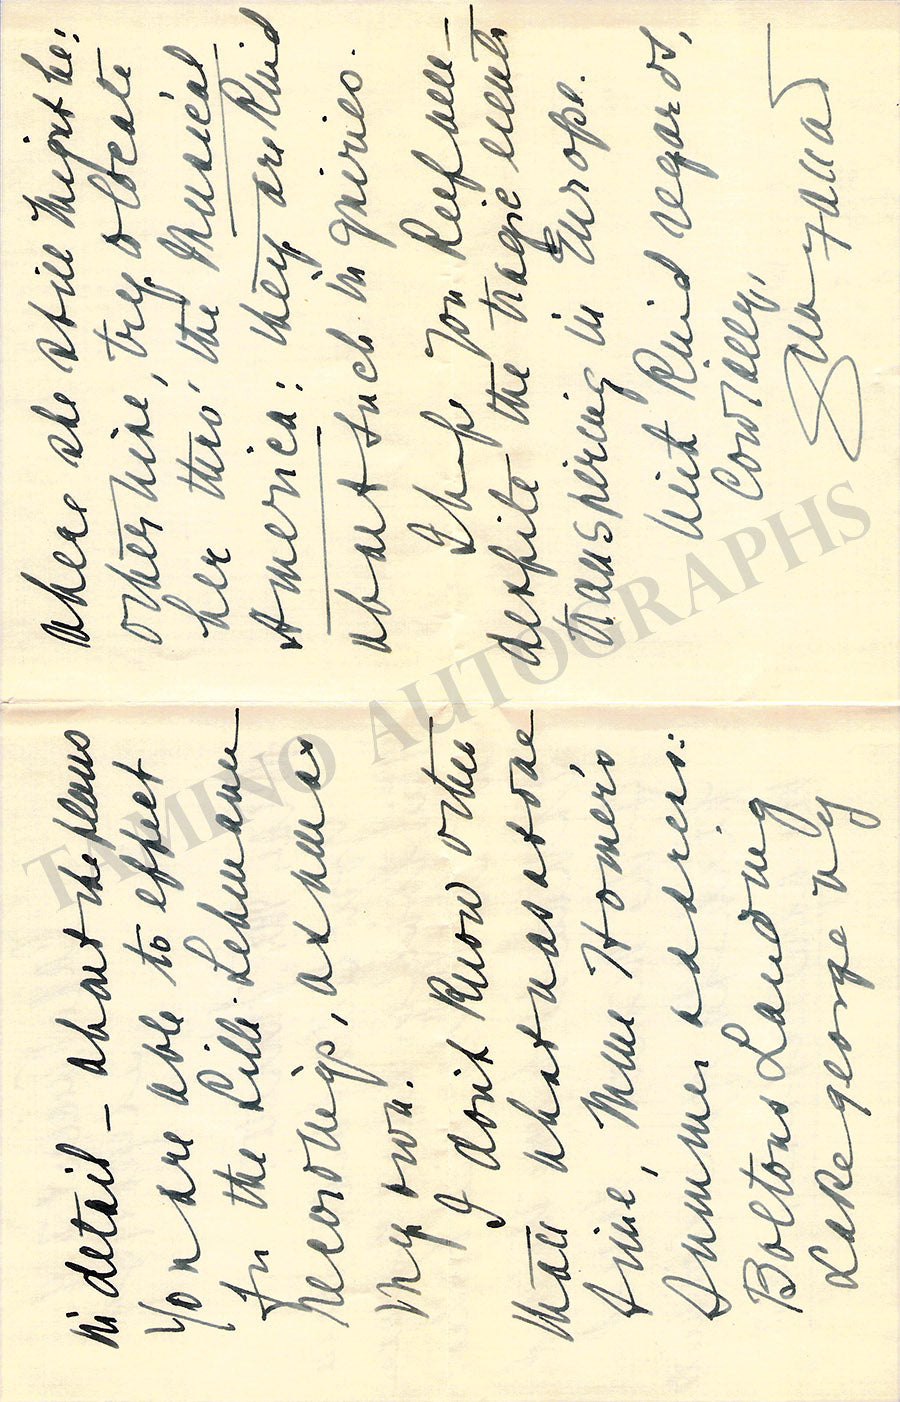 in detail — about the plans
you are able to effect
for the Lilli Lehmann
recordings, as per as
my own.
I don't know other
than what was at one
time, Mme Homer's
summer address:
Boltons Landing
Lake george N Y
where she still might be:
otherwise, try to locate
her thro' the Musical
America: they are kind
about such inquiries.
I hope you keep well —
despite the tragic events
transpiring in Europe.
With kind regards,
Cordially,
TAMINO AUTOGRAPHS